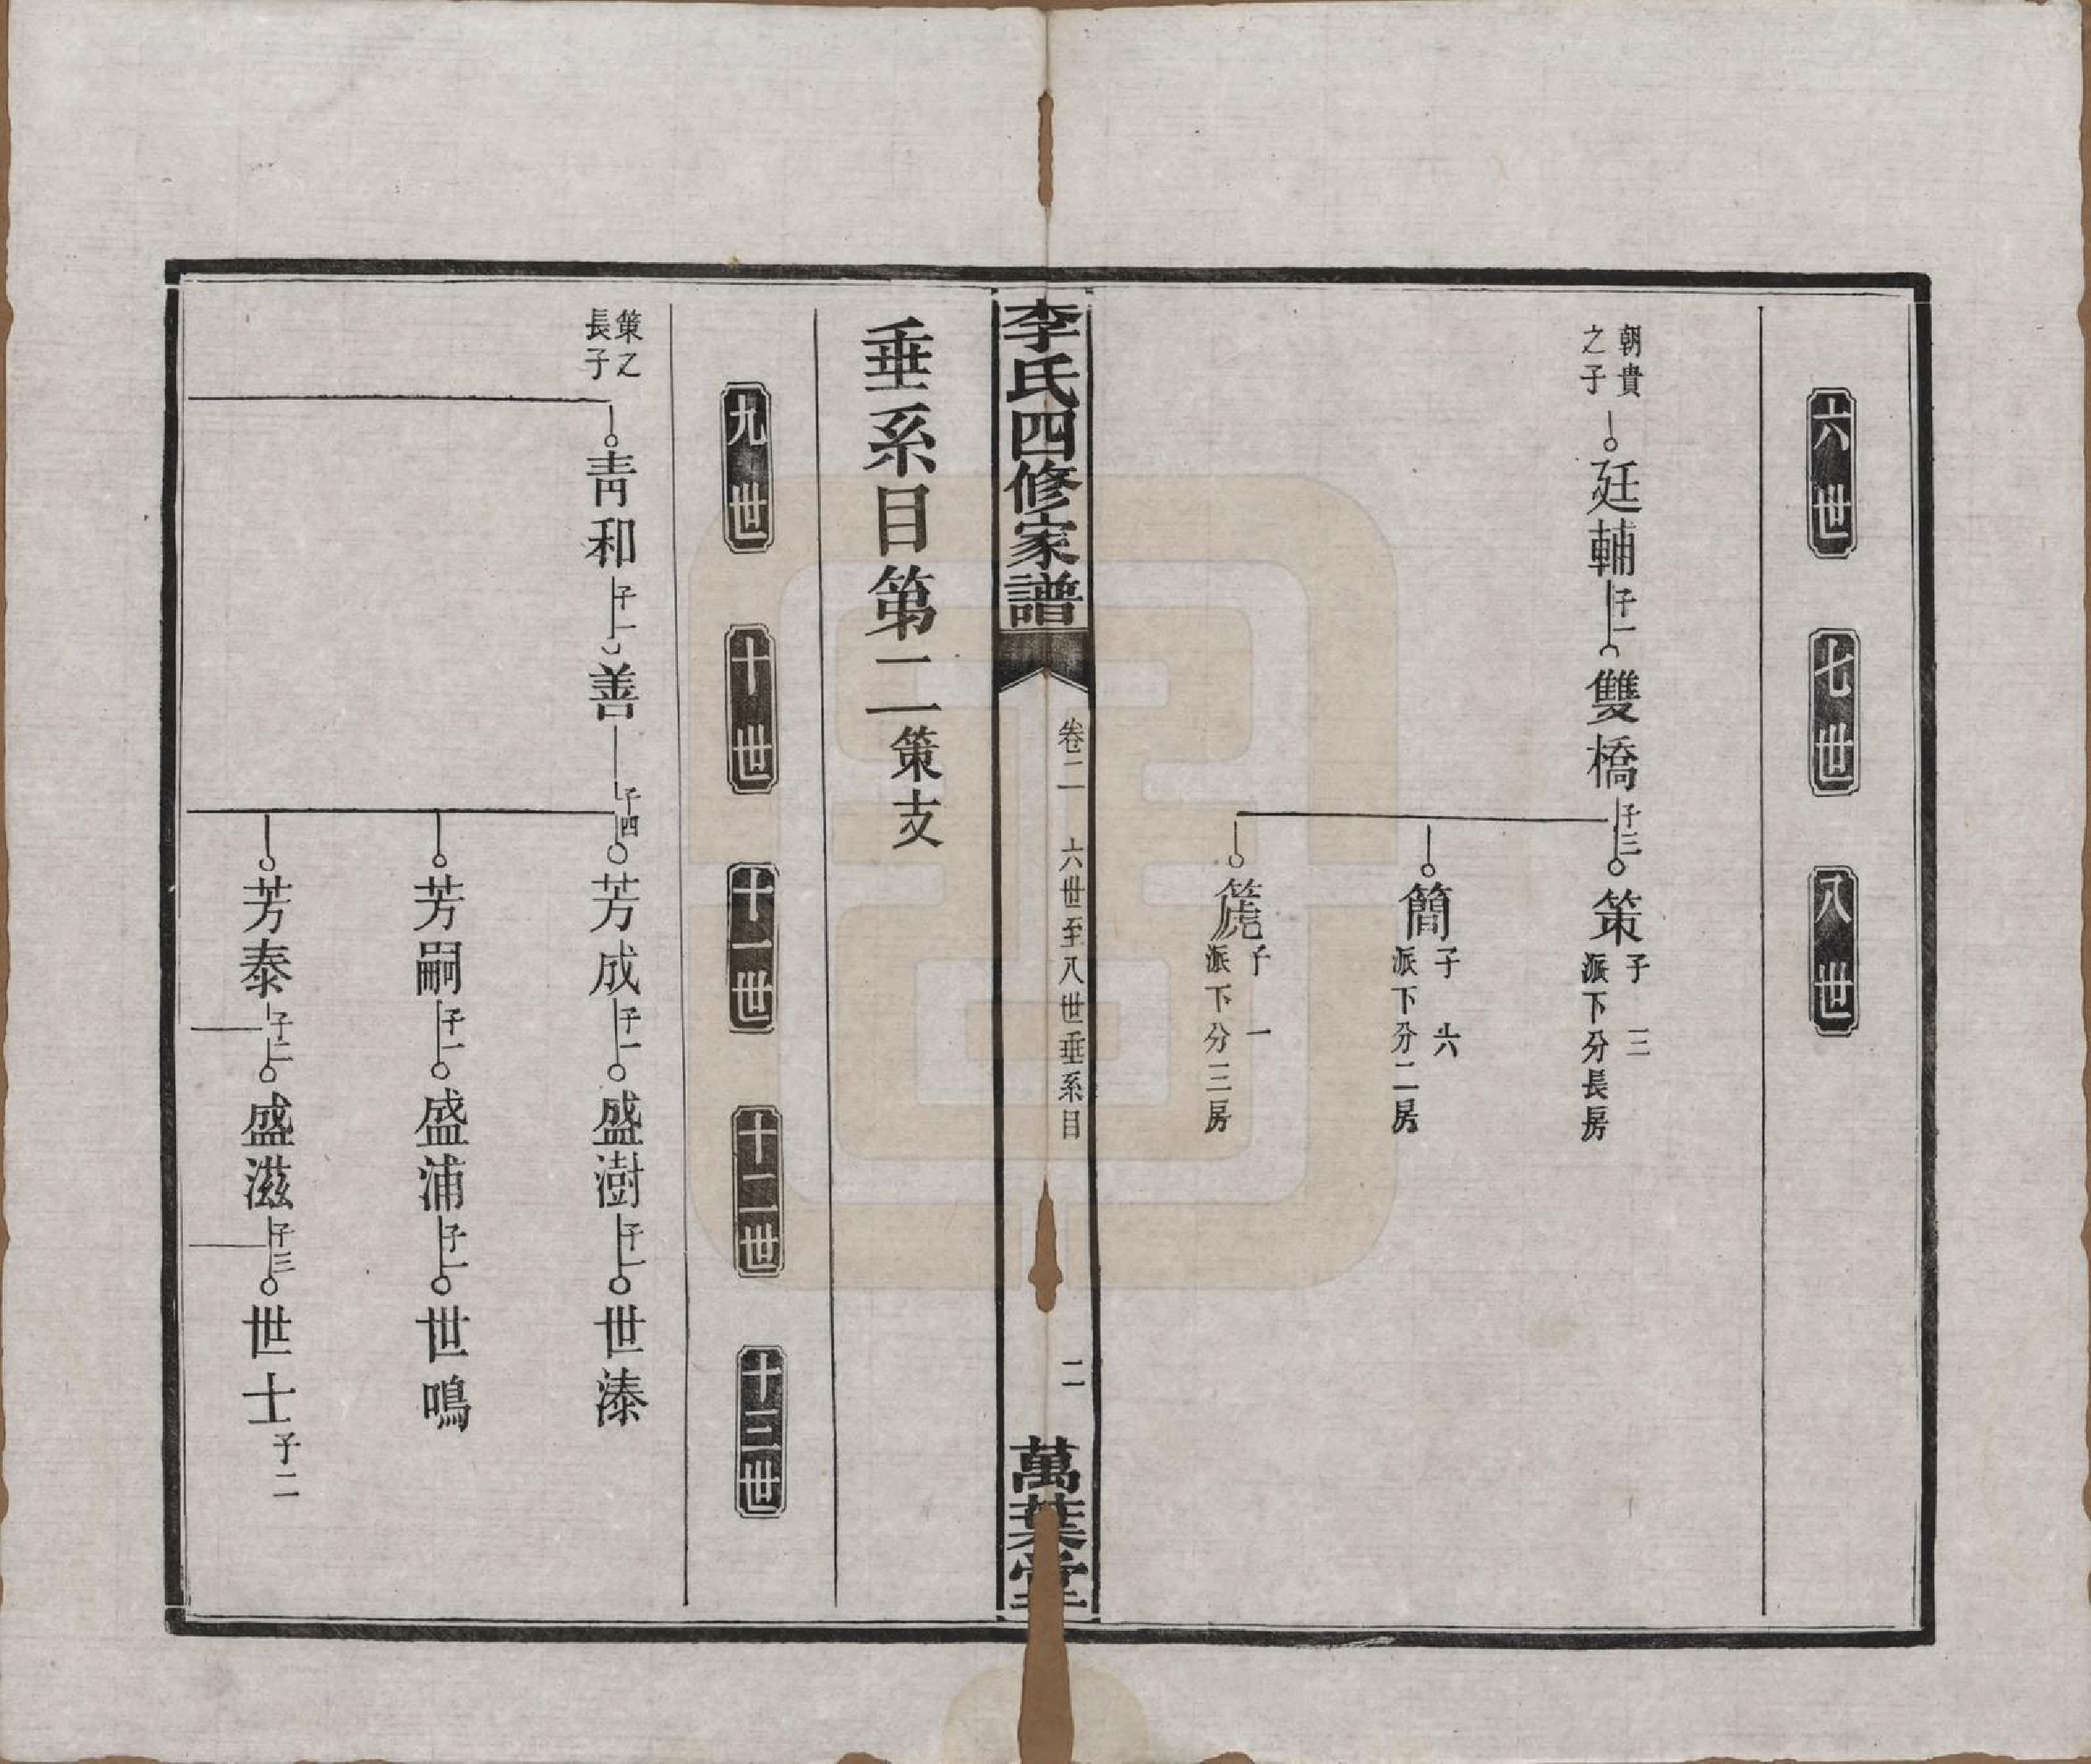 六世　七世　八世
朝貴之子　廷輔　子一　雙橋　子三　策　子三　派下分長房
簡　子六　派下分二房
箎　子一　派下分三房
李氏四修家譜　卷二　六世至八世垂系目　二　萬葉堂
垂系目第二　策支
九世　十世　十一世　十二世　十三世
策之長子　靑和　子一　善　子四　芳成　子一　盛澍　子一　世溱
芳嗣　子一　盛浦　子一　世鳴
芳泰　子二　盛滋　子三　世士　子二